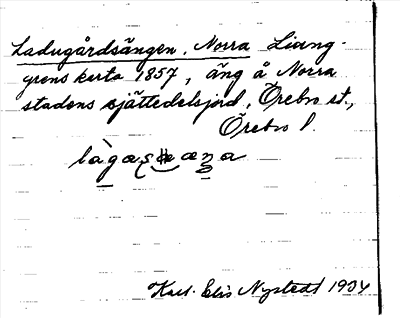 Ladugårdsängen, Norra Ljung-
grens karta 1857, äng å Norra
stadens sjättedelsjord, Örebro st.,
Örebro l.
Karl-Elis Nystedt 1934